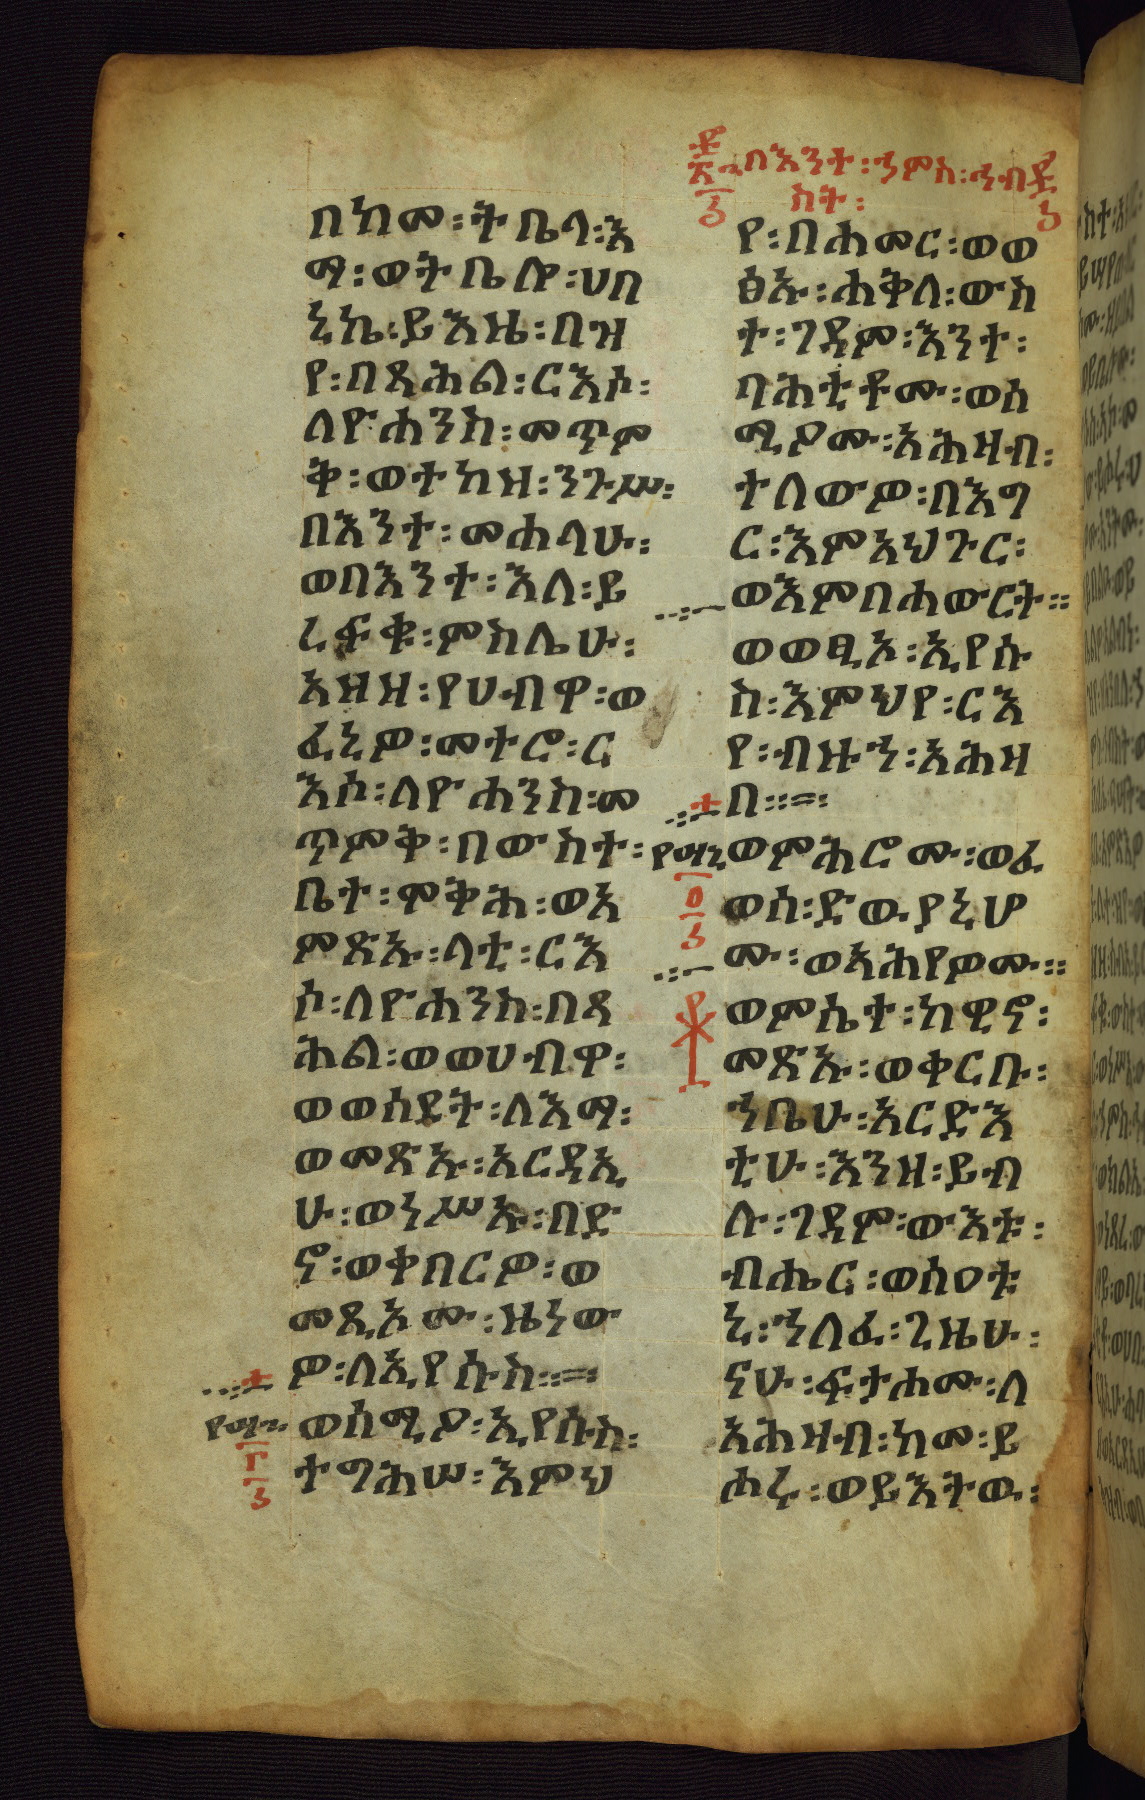 በእንተ፡ኀምስ፡ኅብ
ስት፡
በከመ፡ትቤላ፡እ
ማ፡ወትቤሎ፡ሀበ
ኒኬ፡ይእዜ፡በዝ
የ፡በጻሕል፡ርእሶ፡
ለዮሐንስ፡መጥም
ቅ፡ወተከዘ፡ንጉሥ፡
በእንተ፡መሐላሁ፡
ወበእንተ፡እለ፡ይ
ረፍቁ፡ምስሌሁ፡
አዘዘ፡የሀብዋ፡ወ
ፈነዎ፡መተሮ፡ር
እሶ፡ለዮሐንስ፡መ
ጥምቅ፡በውስተ፡
ቤተ፡ሞቅሕ፡ወአ
ምጽኡ፡ላቲ፡ርእ
ሶ፡ለዮሐንስ፡በጻ
ሕል፡ወወሀብዋ፡
ወወሰደት፡ለእማ፡
ወመጽኡ፡አርዳኢ
ሁ፡ወነሥኡ፡በድ
ኖ፡ወቀበርዎ፡ወ
መጺኦሙ፡ዜነው
ዎ፡ለኢየሱስ።
ወሰሚዖ፡ኢየሱስ፡
ተግሕሠ፡እምህ
የ፡በሐመር፡ወወ
ፅኡ፡ሐቅለ፡ውስ
ተ፡ገዳም፡እንተ፡
ባሕቲቶሙ፡ወሰ
ሚዖሙ፡አሕዛብ፡
ተለውዎ፡በእግ
ር፡እምአህጉር፡
ወእምበሐውርት።
ወወፂኦ፡ኢየሱ
ስ፡እምህየ፡ርእ
የ፡ብዙኀ፡አሕዛ
በ።
ወምሕሮሙ፡ወፈ
ወሰ፡ድዉያኒሆ
ሙ፡ወአሕየዎሙ።
ወምሴተ፡ከዊኖ፡
መጽኡ፡ወቀርቡ፡
ኀቤሁ፡አርድእ
ቲሁ፡እንዘ፡ይብ
ሉ፡ገዳም፡ውእቱ፡
ብሔር፡ወሰዐቱ
ኒ፡ኀለፈ፡ጊዜሁ፡
ናሁ፡ፍታሐሙ፡ለ
አሕዛብ፡ከመ፡ይ
ሐሩ፡ወይእትዉ፡